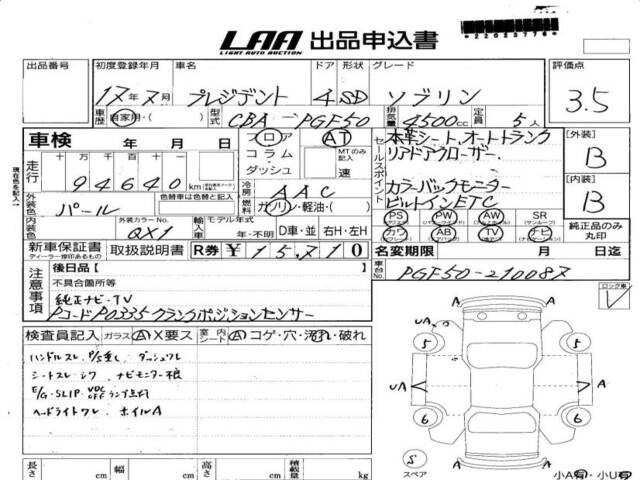 LAA 出品申込書
LIGHT AUTO AUCTION
*220237776*
出品番号 初度登録年月 車名 ドア 形状 グレード 評価点
17年7月 プレジデント 4 SD ソブリン 3.5
車歴 自家用・( ) 型式 CBA-PGF50 排気量 4500cc 定員 5人
車検 年 月 日 フロア AT セールスポイント 本革シート、オートトランク [外装]
コラム MTのみ記入 リアドアクローザー、 B
ダッシュ 速
走行 十 万 千 百 十 カラーバックモニター [内装]
94640 km 冷房 AAC ビルトインETC B
外装色 パール 色替車は色替と記入 燃料 ガソリン・軽油・( )
PS PW AW SR
(パワーステアリング) (パワーウインドウ) (サンルーフ)
カワ AB TV ナビ 純正品のみ丸印
内装色 外装カラーNo. QX1 輸入車 モデル年式 年・不明 D車・並 右H・左H
新車保証書 取扱説明書 R券 ¥15,710 名変期限 月 日迄
ディーラー捺印あるもの
車台No. PGF50-210087
注意事項 後日品[ ]
不具合箇所等
純正ナビ・TV
Pコード P0335 クランクポジションセンサー
ロック車
検査員記入 ガラス A X要ス 室内 シート A コゲ・穴・汚れ・破れ
ハンドルスレ P/S重し ダッシュワレ
シートスレ・シワ ナビモニター根
E/G・SLIP・VDC OFF ランプ点灯
ヘッドライトワレ ホイルA
UA A
5 5
UA A
6 6
S A
スペア 小A有・小U有
長さ cm 幅 cm 高さ cm 積載量 kg
現在色を記入↑